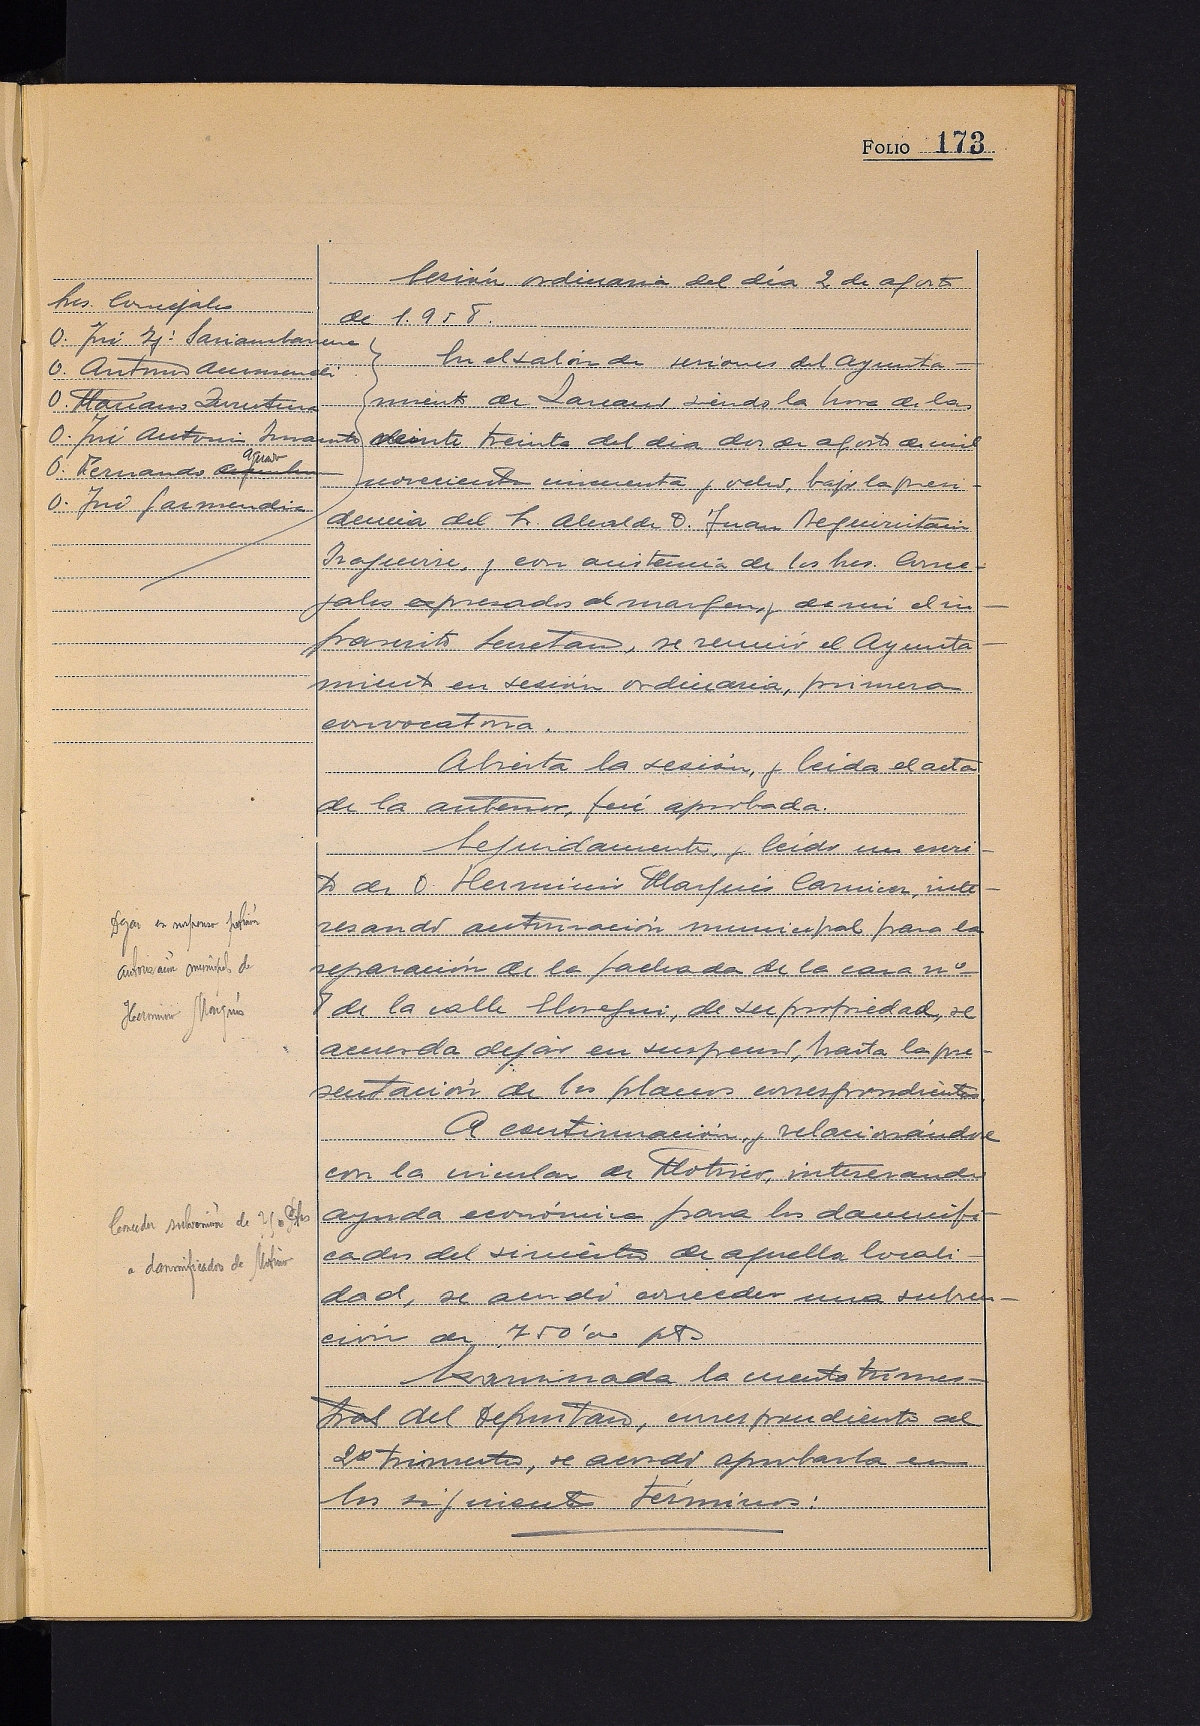 FOLIO 173
Sesión ordinaria del día 2 de agosto
de 1.958.
Sres. Concejales
D. José Mª Sariambarrena
D. Antonio Aurmendi
D. Mariano
D. José Antonio Irmaunto
D. Fernando aguar
D. José Garmendia
En el salón de sesiones del Ayunta-
miento de Lazcano siendo la hora de las
veinte treinta del dia dos de agosto de mil
novecientos cincuenta y ocho, bajo la presi-
dencia del Sr. Alcalde D. Juan Beguiristain
y con asistencia de los Sres. Conce-
jales expresados al margen, y de mi el in-
frascrito Secretario, se reunió el Ayunta-
miento en sesión ordinaria, primera
convocatoria.
Abierta la sesión, y leida el acta
de la anterior, fué aprobada.
Seguidamente, y leído un escri-
to de D Herminio Marqués Carnicer, inte-
resando autorización municipal para la
reparación de la fachada de la casa nº-
8 de la calle Elosegui, de su propiedad, se
acuerda dejar en suspenso, hasta la pre-
sentación de los planos correspondientes.
Dejar en suspenso petición
autorización municipal de
Herminio Marqués
A continuación, y relacionándose
con la circular de Motrico, interesando
ayuda económica para los damnifi-
cados del siniestro de aquella locali-
dad, se acordó conceder una subven-
ción de 750'00 pts
Conceder subvención de 750 Ptas
a damnificados de Motrico
Examinada la cuenta trimes-
tral del Depositario, correspondiente al
2º trimestre, se acordó aprobarla en
los siguientes términos: